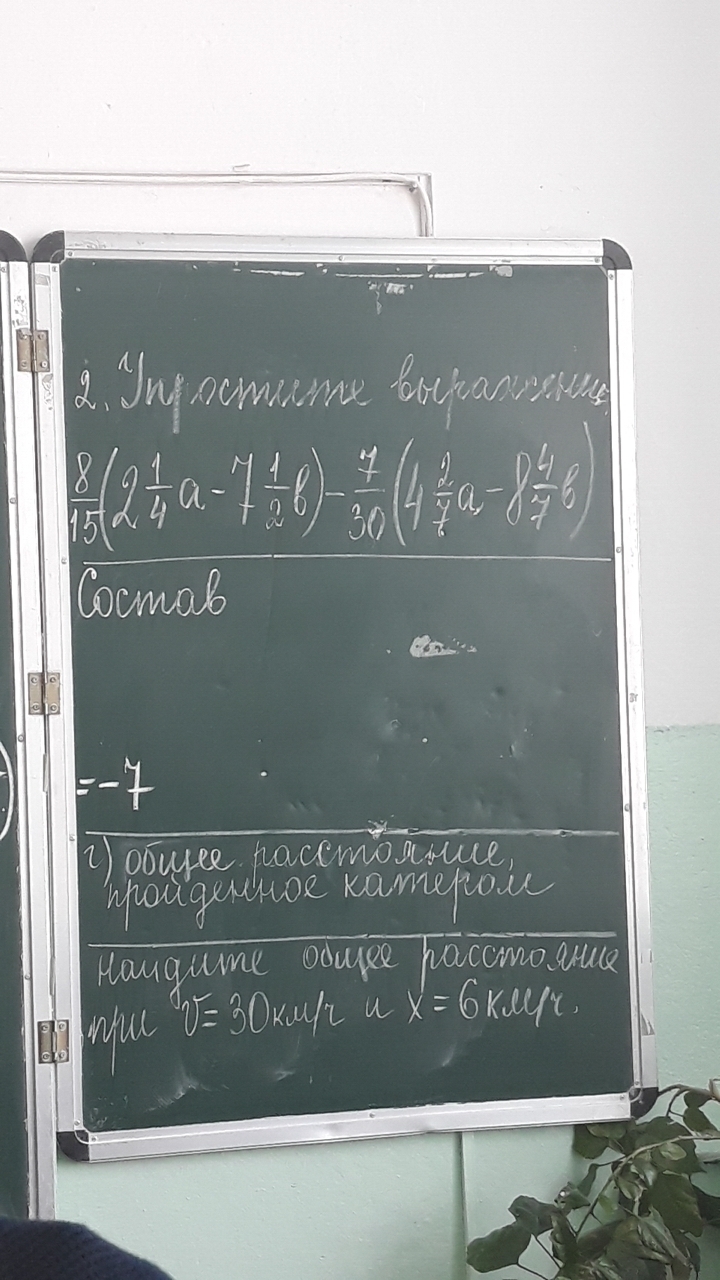 2. Упростите выражение
8/15(2 1/4 а - 7 1/2 в) - 7/30(4 2/7 а - 8 4/7 в)
Состав
= -7
г) общее расстояние,
пройденное катером
найдите общее расстояние
при v = 30 км/ч и x = 6 км/ч.